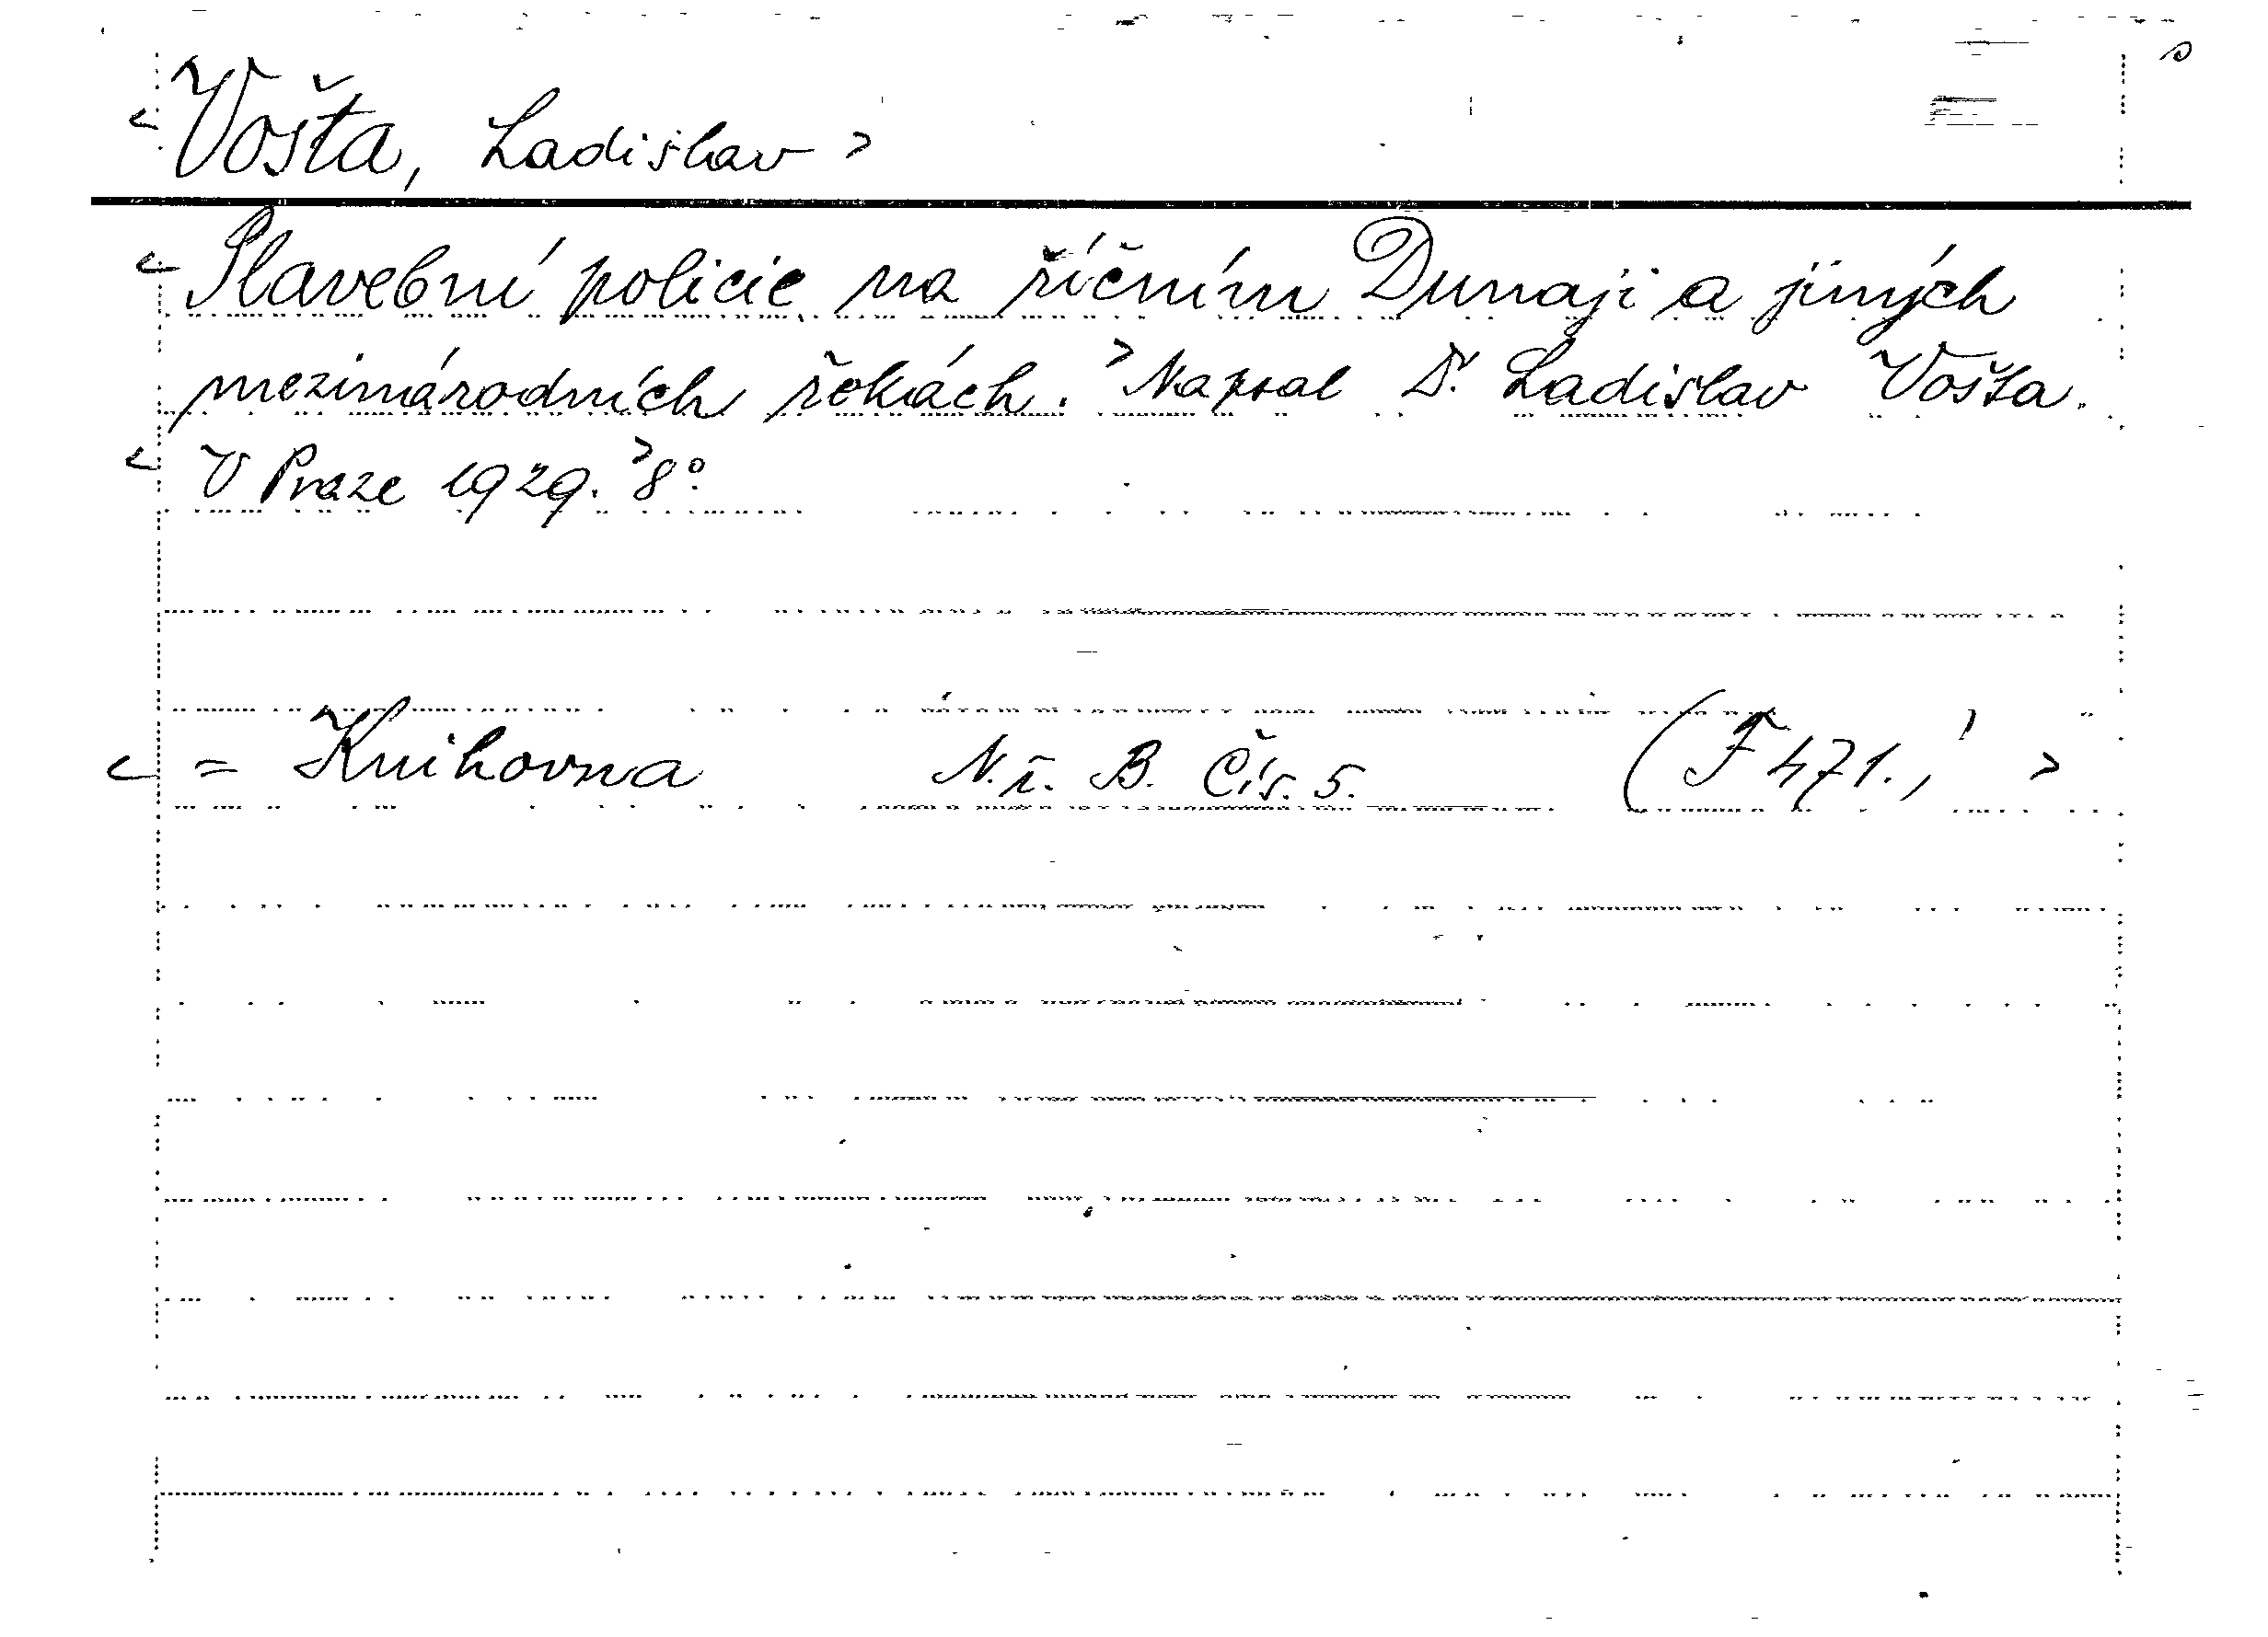 < Vošta, Ladislav >
< Plavební policie na říčním Dunaji a jiných
mezinárodních řekách. > Napsal Dr. Ladislav Vošta.
< V Praze 1929. > 8°.
< = Knihovna N. ř. B. Čís. 5. (F 471.) >